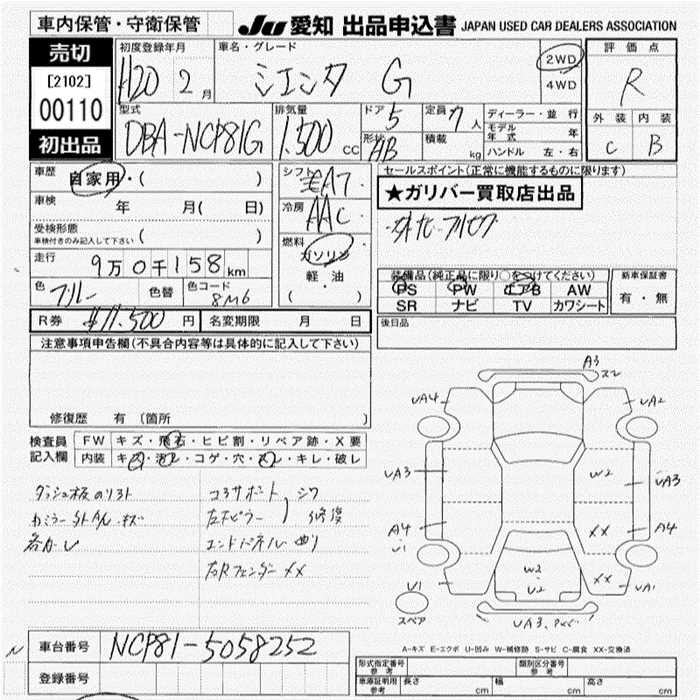 車内保管・守衛保管
JU 愛知 出品申込書 JAPAN USED CAR DEALERS ASSOCIATION
売切
[2102]
00110
初出品
初度登録年月 車名・グレード 評価点
H20 2月 シエンタ G 2WD 4WD R
型式 排気量 ドア 定員 ディーラー・並行 外装 内装
DBA-NCP81G 1.500cc 5 7人 モデル年式 年 C B
形状 積載 kg ハンドル 左・右
AB
車歴 自家用・( ) シフト AT セールスポイント(正常に機能するものに限ります)
車検 年 月( 日) 冷房 AAC ★ガリバー買取店出品
受検形態 車検付きのみ記入して下さい ( ) 燃料 ガソリン 軽・油 ( ・ )
走行 9万0千158km
色 色替 色コード 8M6
装備品(純正品に限り○をつけてください) 新車保証書
PS PW エアB AW 有・無
SR ナビ TV カワシート
R券 ¥11.500円 名変期限 月 日 後日品
注意事項申告欄(不具合内容等は具体的に記入して下さい)
修復歴 有 〔箇所 〕
検査員記入欄 FW キズ・飛石・ヒビ割・リペア跡・X要
内装 キズ・汚レ・コゲ・穴・スレ・キレ・破レ
ダッシュ板のリフト コアサポート シワ
左右ピラー 修復
エンドパネル 曲り
右Rフェンダー XX
A3
UA4 UA2
UA3 W2 UA3
A4 XX A4
U1 W2 XX
U1 U2 UA1
スペア UA3
A-キズ E-エクボ U-凹み W-補修跡 S-サビ C-腐食 XX-交換済
車台番号 NCP81-5058252
登録番号
形式指定番号 参考 類別区分番号 参考
車庫証明用 参考 長さ cm 幅 cm 高さ cm